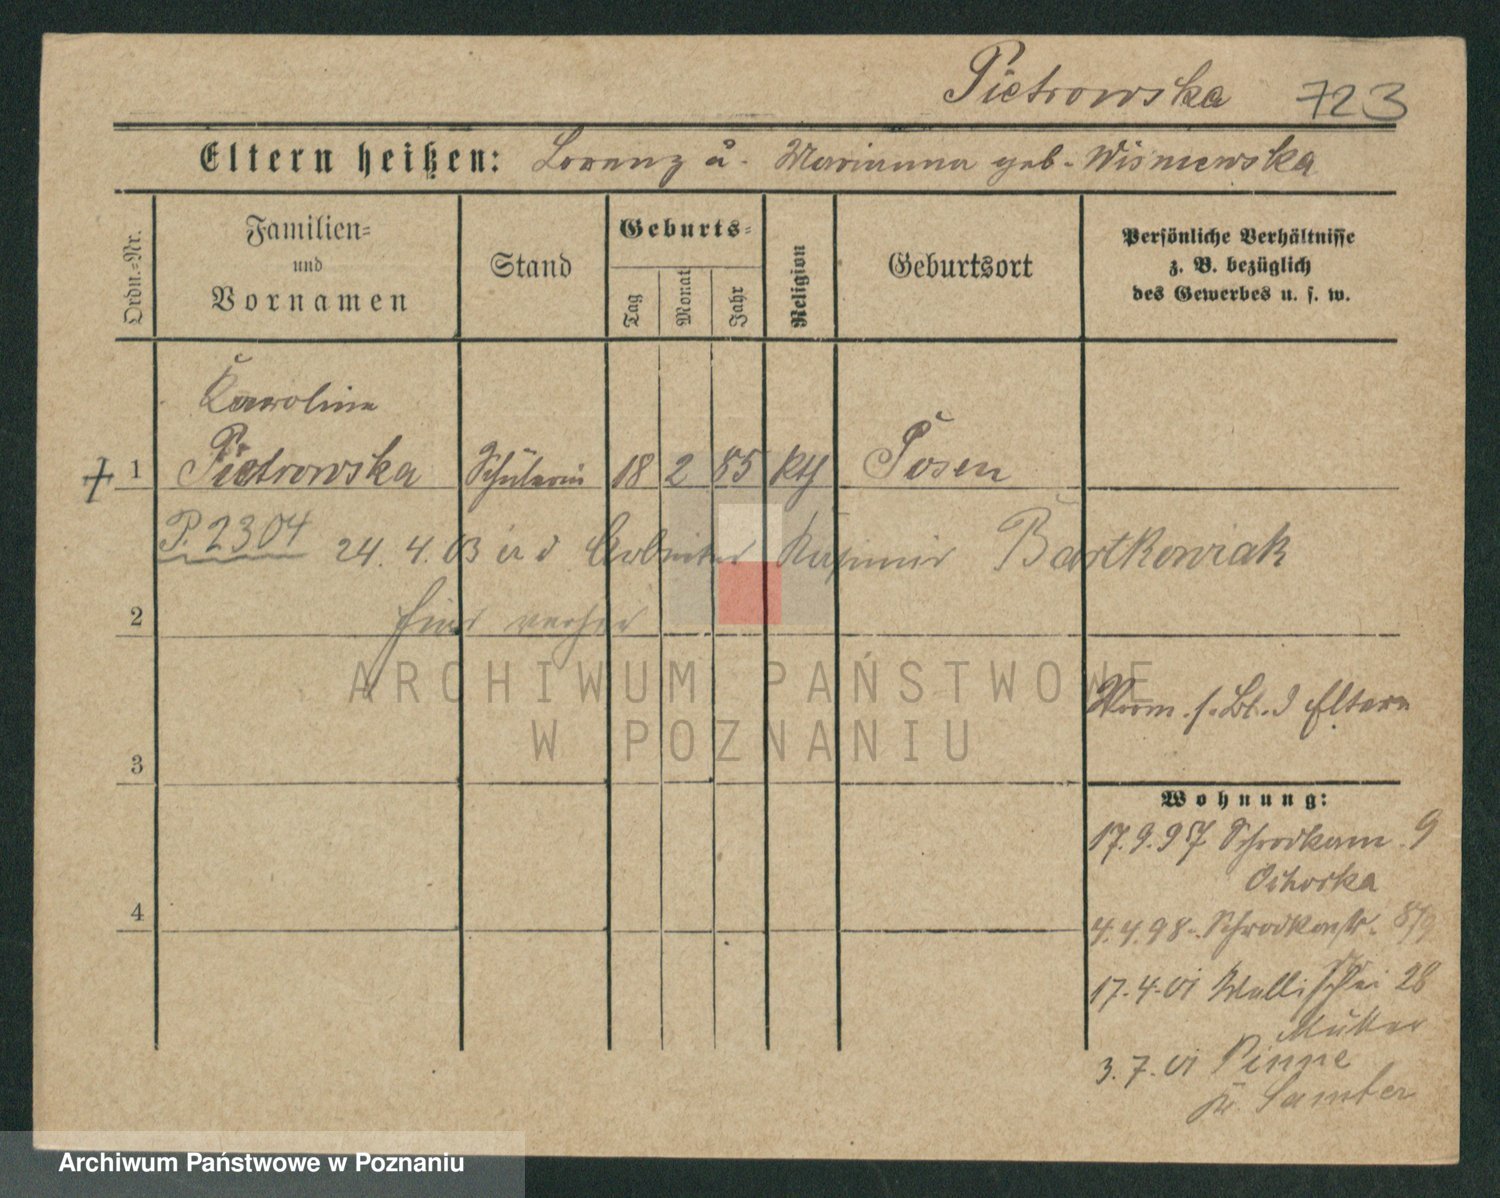 Pietrowska 723
Eltern heißen: Lorenz u. Marianna geb. Wisniewska
Ordn.=Nr.
Familien=
und
Vornamen
Stand
Geburts=
Tag
Monat
Jahr
Religion
Geburtsort
Persönliche Verhältnisse
z. B. bezüglich
des Gewerbes u. s. w.
Karoline
1 Pietrowska Schülerin 18 2 85 kth Posen
P. 2304 24. 4. 03 Arbeiter Kasimir Bartkowiak
hier
2
ARCHIWUM PAŃSTWOWE
W POZNANIU
Verm. s. Bl. d Eltern
3
Wohnung:
17. 9. 97 Schrodkam. 9
4
4. 4. 98. Schrodkastr. 8/9
17. 4. 01 Wallischei 28
Mutter
3. 7. 01 Pinne
Samter
Archiwum Państwowe w Poznaniu